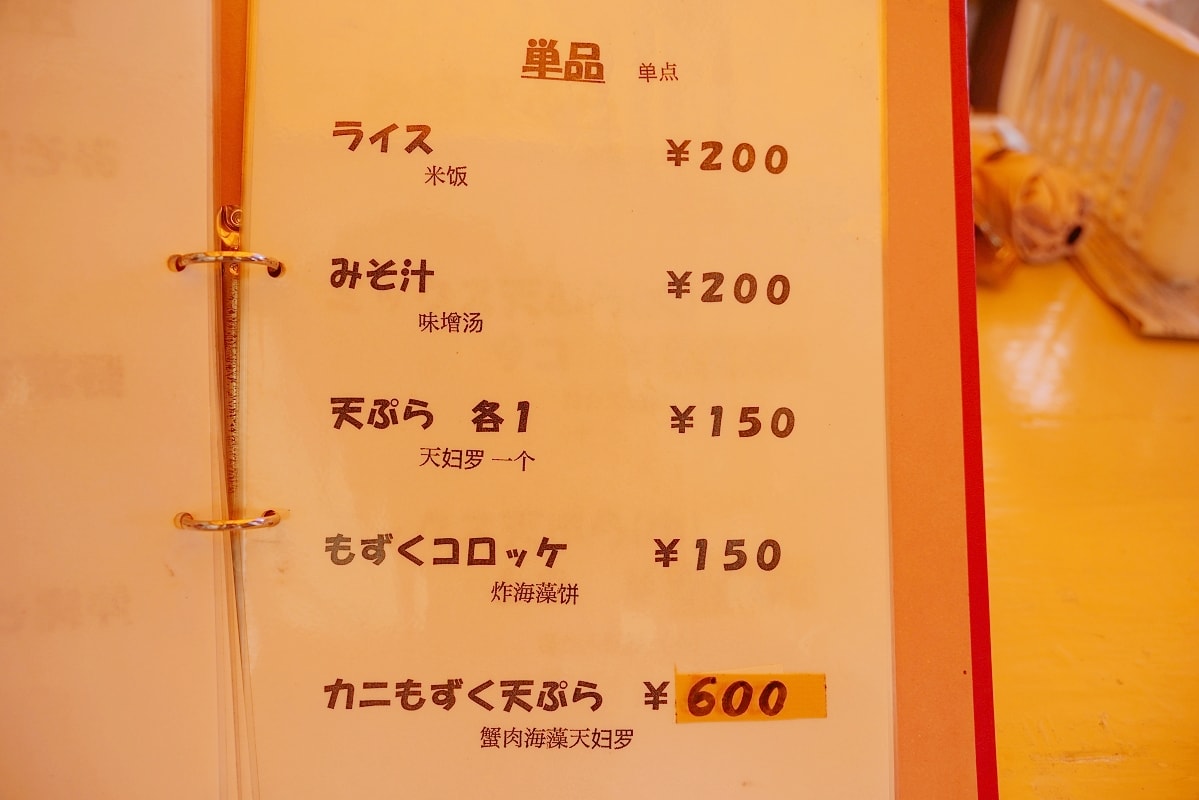 単品 单点
ライス ¥200
米饭
みそ汁 ¥200
味增汤
天ぷら 各1 ¥150
天妇罗 一个
もずくコロッケ ¥150
炸海藻饼
カニもずく天ぷら ¥600
蟹肉海藻天妇罗